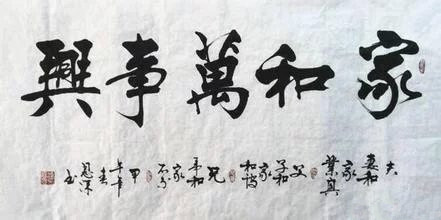 家和萬事興
夫妻和家業興
父子和家和
兄弟和家不分
甲午年春恩深书